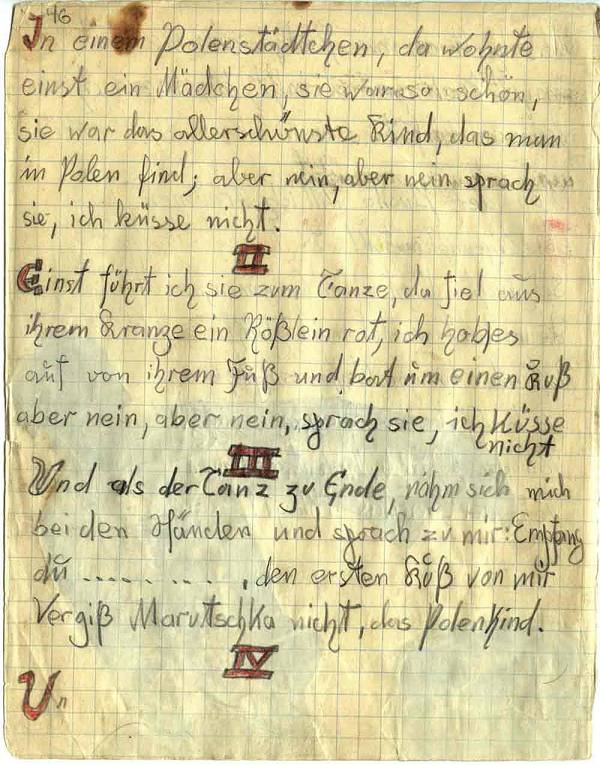 46
In einem Polenstädtchen, da wohnte
einst ein Mädchen, sie war so schön,
sie war das allerschönste Kind, das man
in Polen find; aber nein, aber nein sprach
sie, ich küsse nicht.
II
Einst führt ich sie zum Tanze, da fiel aus
ihrem Kranze ein Rößlein rot, ich hob es
auf von ihrem Fuß und bat um einen Kuß
aber nein, aber nein, sprach sie, ich Küsse
nicht
III
Und als der Tanz zu Ende, nahm sich mich
bei den Händen und sprach zu mir: Empfang
du ........., den ersten Kuß von mir
Vergiß Marutschka nicht, das Polenkind.
IV
Un